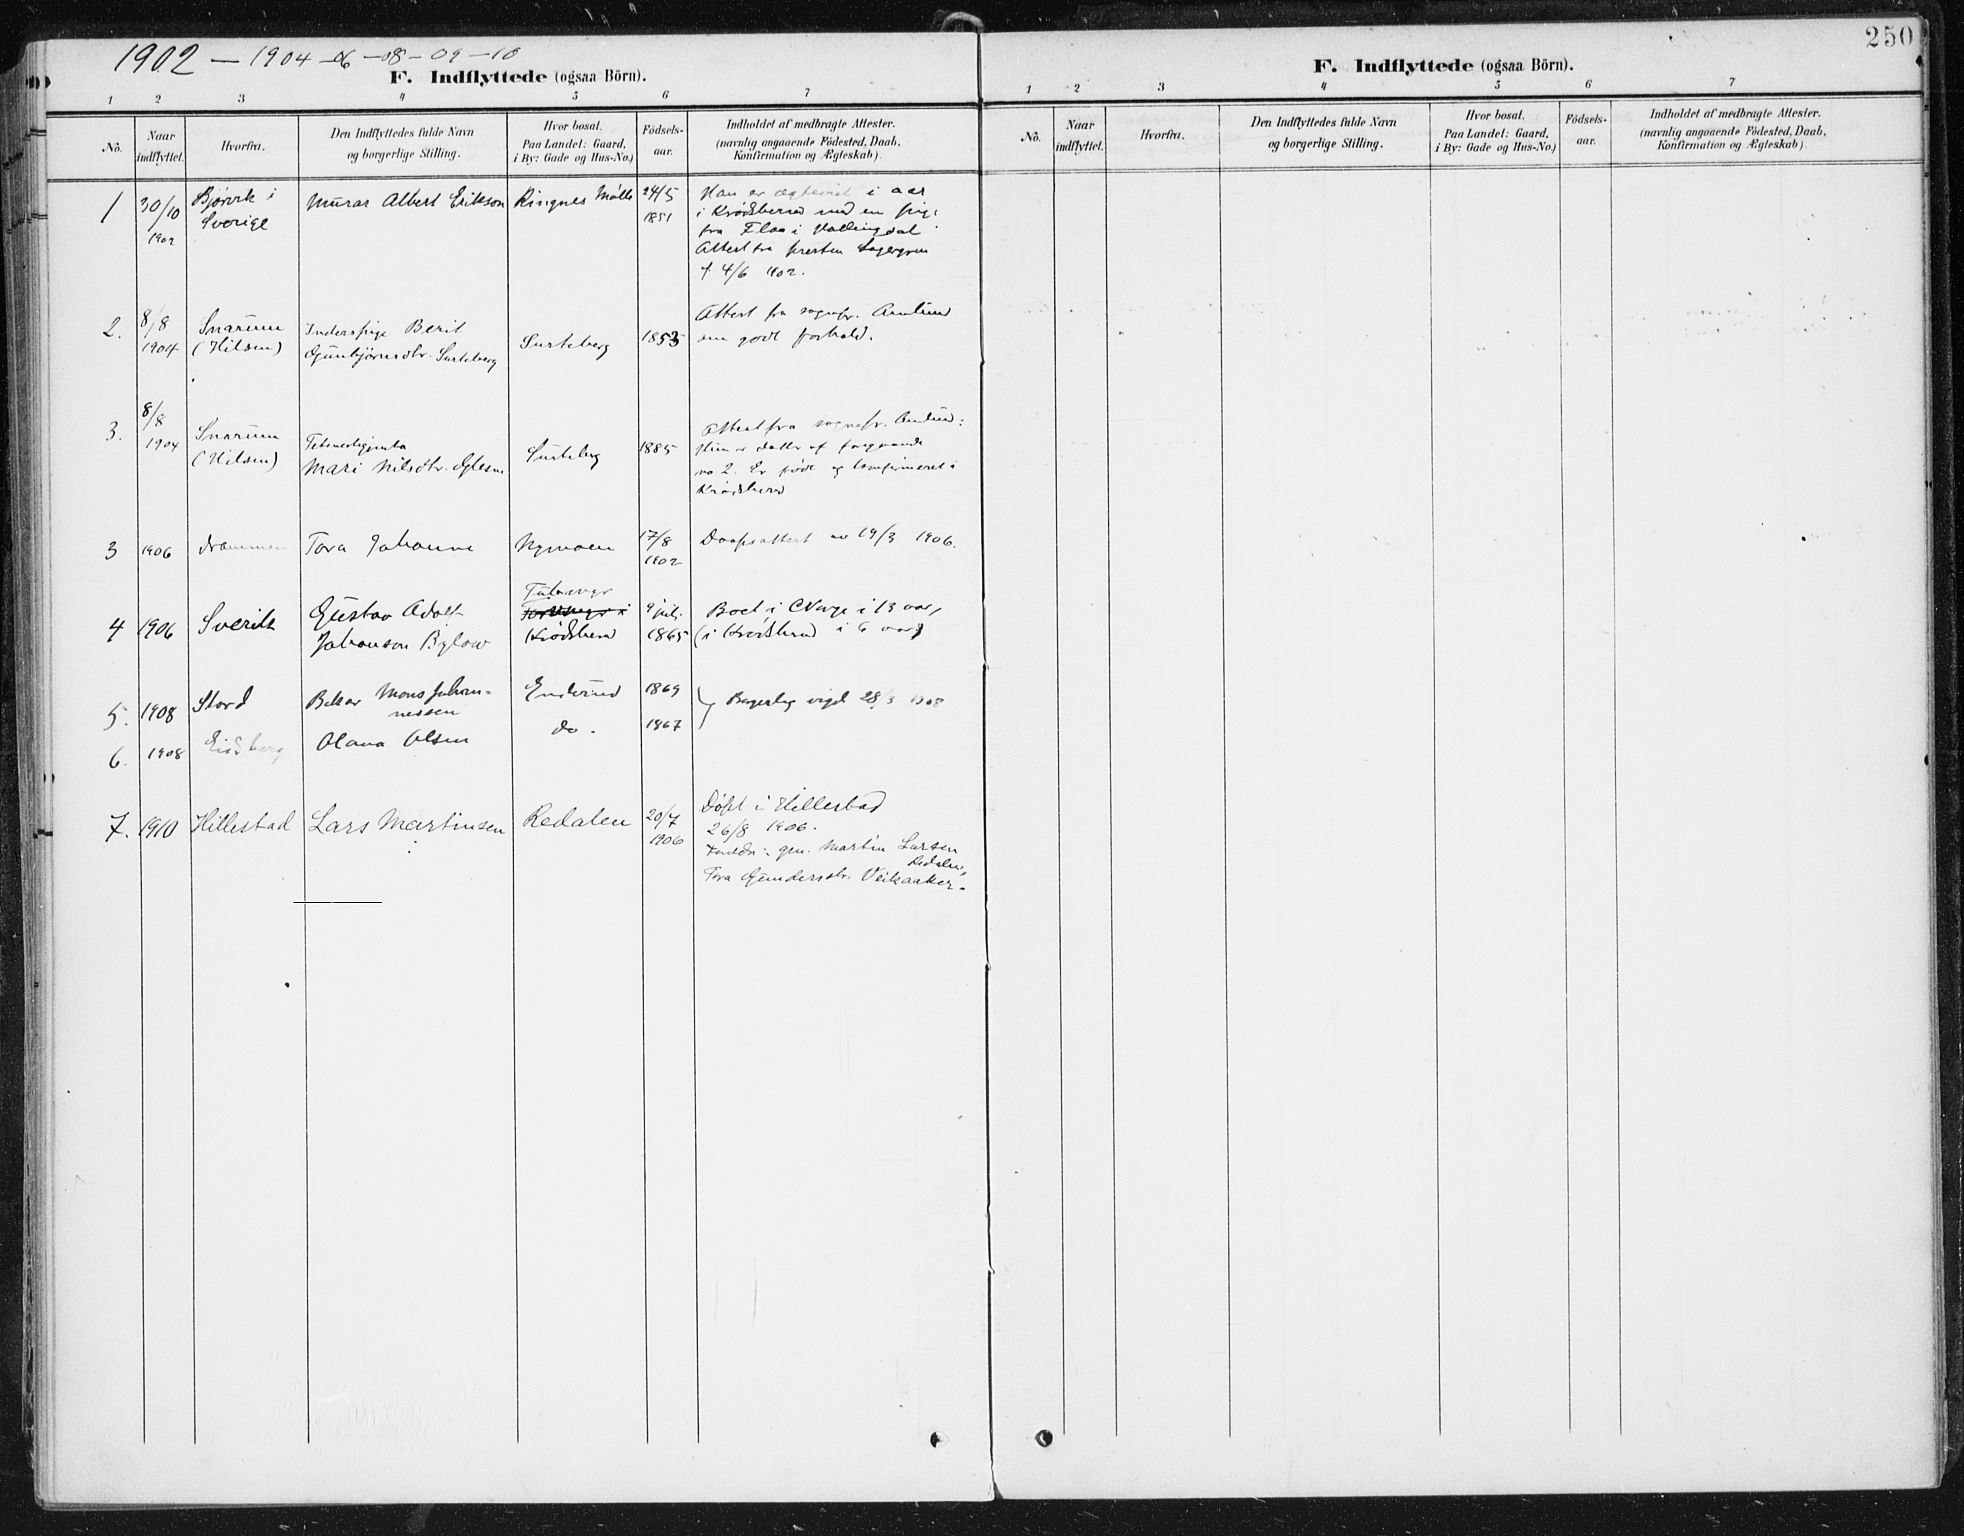 250
1902 – 1904 – 06 – 08 – 09 – 10
F. Indflyttede (ogsaa Börn).
1 2 3 4 5 6 7
No.
Naar indflyttet.
Hvorfra.
Den Indflyttedes fulde Navn
og borgerlige Stilling.
Hvor bosat.
Paa Landet: Gaard,
i By: Gade og Hus-No.)
Födsels-
aar.
Indholdet af medbragte Attester.
(navnlig angaaende Födested, Daab,
Konfirmation og Ægteskab).
1
30/10
1902
Bjørvik i
Sverige
Murar Albert Erikson
Ringnes Mølle
24/5
1851
Han er i aar
i Krødsherad med en
fra Flaa i Hallingdal
Attest fra presten
4/6 1902.
2.
8/8
1904
Snarum
(Hilsen)
Inderspige Berit
Gunbjørnsdtr. Surteberg
Surteberg
1853
Attest fra sognepr. Amlund
om godt forhold.
3.
8/8
1904
Snarum
(Hilsen)
Mari Nilsdtr.
Surteberg
1885
Attest fra sognepr. Amlund:
Hun er datter af foregaaende
no 2. Er født og konfirmeret i
Krødsherad
3
1906
Drammen
Tora Johanne
Nymoen
17/8
1902
Daapsattest av 19/3 1906.
4
1906
Sverik
Gustav Adolf
Johanson Bylow
Krødsherad
9 jul.
1865
Boet i Norge i 13 aar,
(i Krødsherad i 6 aar)
5.
1908
Stord
Baker Mons Johan-
nessen
1869
Borgerlig vigd 28/3 1908
6.
1908
Eidsberg
Olava Olsen
do.
1867
7.
1910
Hillestad
Lars Martinsen
Redalen
20/7
1906
Døpt i Hillestad
26/8 1906.
Foreldr: gm. Martin Larsen
Redalen,
Tora Gundersdtr. Veikaaker.
F. Indflyttede (ogsaa Börn).
1 2 3 4 5 6 7
No.
Naar indflyttet.
Hvorfra.
Den Indflyttedes fulde Navn
og borgerlige Stilling.
Hvor bosat.
Paa Landet: Gaard,
i By: Gade og Hus-No.)
Födsels-
aar.
Indholdet af medbragte Attester.
(navnlig angaaende Födested, Daab,
Konfirmation og Ægteskab).